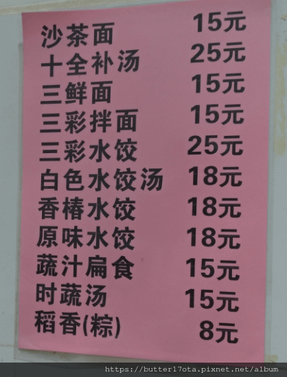 沙茶面 15元
十全补汤 25元
三鲜面 15元
三彩拌面 15元
三彩水饺 25元
白色水饺汤 18元
香椿水饺 18元
原味水饺 18元
蔬汁扁食 15元
时蔬汤 15元
稻香(粽) 8元
https://butter17ota.pixnet.net/album